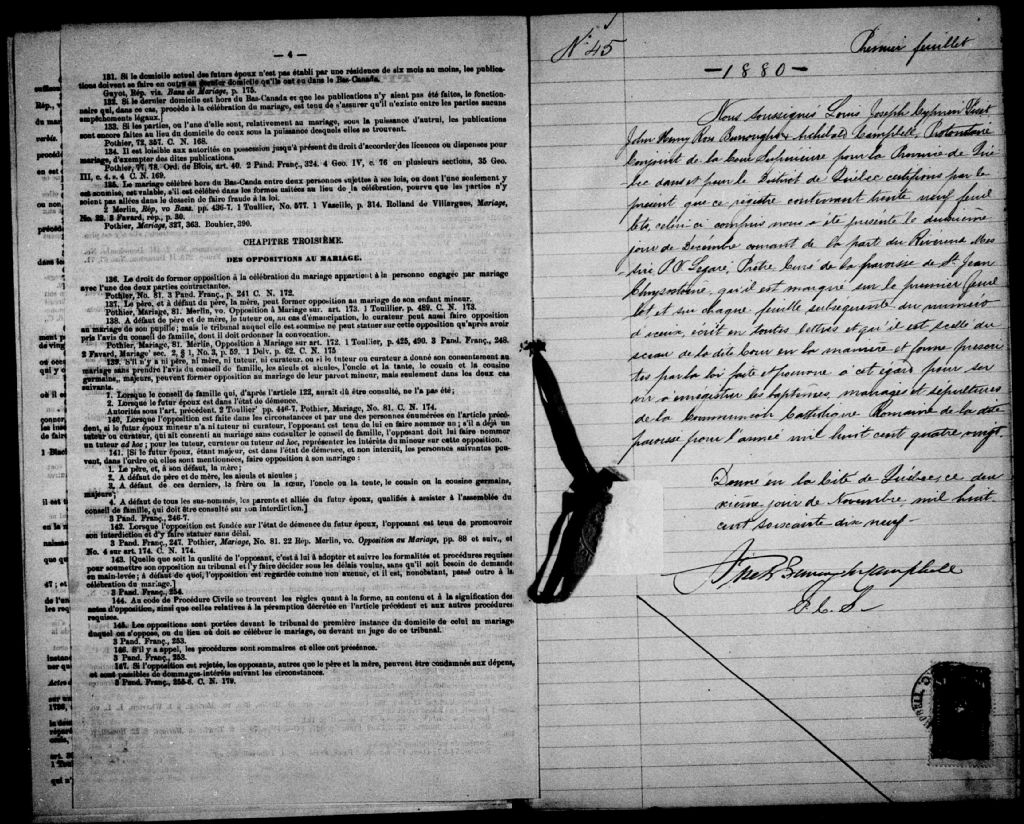 — 4 —
131. Si le domicile actuel des futurs époux n'est pas établi par une résidence de six mois au moins, les publica-
tions doivent se faire en outre au dernier domicile qu'ils ont eu dans le Bas-Canada.
Guyot, Rép. vis. Bans de Mariage, p. 175.
132. Si le dernier domicile est hors du Bas-Canada et que les publications n'y aient pas été faites, le fonction-
naire qui, dans ce cas, procède à la célébration du mariage, est tenu de s'assurer qu'il n'existe entre les parties aucuns
empêchements légaux.]
133. Si les parties, ou l'une d'elle sont, relativement au mariage, sous la puissance d'autrui, les publications
sont encore faites au lieu du domicile de ceux sous la puissance desquels elles se trouvent.
Pothier, 72, 357. C. N. 168.
134. Il est loisible aux autorités en possession jusqu'à présent du droit d'accorder des licences ou dispenses pour
mariage, d'exempter des dites publications.
Pothier, 77, 78. Ord. de Blois, art. 40. 2 Pand. Franç., 324. 4 Geo. IV, c. 76 en plusieurs sections, 35 Geo.
III, c. 4, s. 4 C. N. 169.
135. Le mariage célébré hors du Bas-Canda entre deux personnes sujettes à ses lois, ou dont l'une seulement y
est soumise, est valable, s'il est célébré dans les formes usitées au lieu de la célébration, pourvu que les parties n'y
soient pas allées dans le dessein de faire fraude à la loi.
2 Merlin, Rép, vo Bans, pp. 436-7. 1 Toullier, No. 577. 1 Vazeille, p. 314. Rolland de Villargues, Mariage,
No. 22. 3 Favard, rép., p. 30.
Pothier, Mariage, 327, 363. Bouhier, 390.
CHAPITRE TROISIÈME.
DES OPPOSITIONS AU MARIAGE.
136. Le droit de former opposition à la célébration du mariage appartient à la personne engagée par mariage
avec l'une des deux parties contractantes.
Pothier, No. 81. 3 Pand. Franç., p. 241 C. N. 172.
137. Le père, et à défaut du père, la mère, peut former opposition au mariage de son enfant mineur.
Pothier, Mariage, 81. Merlin, vo. Opposition à Mariage sur. art. 173. 1 Toullier, p. 489. C. N. 173.
138. A défaut de père et de mère, le tuteur ou, au cas d'émancipation, le curateur peut aussi faire opposition
au mariage de son pupille; mais le tribunal auquel elle est soumise ne peut statuer sur cette opposition qu'après avoir
pris l'avis du conseil de famille, dont il doit ordonner la convocation.
Pothier, Mariage, 81. Merlin, Opposition à Mariage sur art. 172. 1 Toullier, p. 425, 490. 3 Pand. Franç., 248.
2 Favard, Mariage, sec. 2, § 1, No. 3, p. 59. 1 Delv. p. 62. C. N. 175
139. S'il n'y a ni père, ni mère, ni tuteur, ni curateur, ou si le tuteur ou curateur a donné son consentement au
mariage sans prendre l'avis du conseil de famille, les aïeuls et aïeules, l'oncle et la tante, le cousin et la cousine
germains, majeurs, peuvent former opposition au mariage de leur parent mineur, mais seulement dans les deux cas
suivants.
1. Lorsque le conseil de famille qui, d'après l'article 122, aurait dû être consulté, ne l'a pas été;
2. Lorsque le futur époux est dans l'état de démence.
Autorités sous l'art. précédent. 2 Toullier pp. 446-7. Pothier, Mariage, No. 81. C. N. 174.
140. Lorsque l'opposition est formée dans les circonstances et par une des personnes énumérées en l'article précé-
dent, si le futur époux mineur n'a ni tuteur ni curateur, l'opposant est tenu de lui en faire nommer un; s'il a déjà un
tuteur ou curateur, qui ait consenti au mariage sans consulter le conseil de famille, l'opposant doit lui faire nommer
un tuteur ad hoc; pour les tuteur, curateur ou tuteur ad hoc, représenter les intérêts du mineur sur cette opposition.
141. [Si le futur époux, étant majeur, est dans l'état de démence, et non interdit, les personnes suivantes peu-
vent, dans l'ordre où elles sont mentionnées, faire opposition à son mariage:
1. Le père, et, à son défaut, la mère;
2. A défaut de père et de mère, les aïeuls et aïeules;
3. A défaut de ces derniers, le frère ou la sœur, l'oncle ou la tante, le cousin ou la cousine germains,
majeurs;
4. A défaut de tous les sus-nommés, les parents et alliés du futur époux, qualifiés à assister à l'assemblée du
conseil de famille, qui doit être consulté sur son interdiction.]
3 Pand. Franç., 246-7.
142. Lorsque l'opposition est fondée sur l'état de démence du futur époux, l'opposant est tenu de promouvoir
son interdiction et d'y faire statuer sans délai.
3 Pand. Franç., 247. Pothier, Mariage, No. 81. 22 Rép. Merlin, vo. Opposition au Mariage, pp. 88 et suiv., et
No. 4 sur art. 174. C. N. 174.
143. [Quelle que soit la qualité de l'opposant, c'est à lui à adopter et suivre les formalités et procédures requises
pour soumettre son opposition au tribunal et l'y faire décider sous les délais voulus, sans qu'il soit besoin de demande
en main-levée; A défaut de quoi, l'opposition est regardée comme non avenue, et il est, nonobstant, passé outre à la
célébration du mariage.]
3 Pand. Franç., 254.
144. Au code de Procédure Civile se trouvent les règles quant à la forme, au contenu et à la signification des
actes d'opposition, ainsi que celles relatives à la péremption décrétée en l'article précédent et aux autres procédures
requises.
145. Les oppositions sont portées devant le tribunal de première instance du domicile de celui au mariage
duquel on s'oppose, ou du lieu où doit se célébrer le mariage, ou devant un juge de ce tribunal.
3 Pand. Franç., 253.
146. S'il y a appel, les procédures sont sommaires et elles ont préséance.
3 Pand. Franç., 253.
147. Si l'opposition est rejetée, les opposants, autres que le père et la mère, peuvent être condamnés aux dépens,
et sont passibles de dommages-intérêts suivant les circonstances.
3 Pand. Franç., 255-6. C. N. 179.
No 45
Premier feuillet
— 1880 —
Nous soussignés Louis Joseph Cyprien Fiset
John Henry Ross Burroughs & Archibald Campbell, Protonotaire
Conjoint de la Cour Supérieure pour la Province de Qué
bec dans et pour le District de Québec certifions par le
présent que ce registre contenant trente neuf feuil
lets, celui-ci compris nous a été présenté le deuxième
jour de Décembre courant de la part du Révérend Mes
sire Légaré, Prêtre Curé de la paroisse de St Jean
Chrysostôme, qu'il est marqué sur le premier feuil
let et sur chaque feuille subséquente du numéro
d'iceux, écrit en toutes lettres et qu'il est scellé du
sceau de la dite Cour en la manière et forme prescri
tes par la loi faite et pourvue à cet égard pour ser
vir à enrégistrer les baptêmes, mariages et sépultures
de la Communion Catholique Romaine de la dite
paroisse pour l'année mil huit cent quatre vingt.
Donné en la Cité de Québec, ce deu
xième jour de Novembre, mil huit
cent soixante dix neuf.
Fiset Burroughs Campbell
P. C. S.